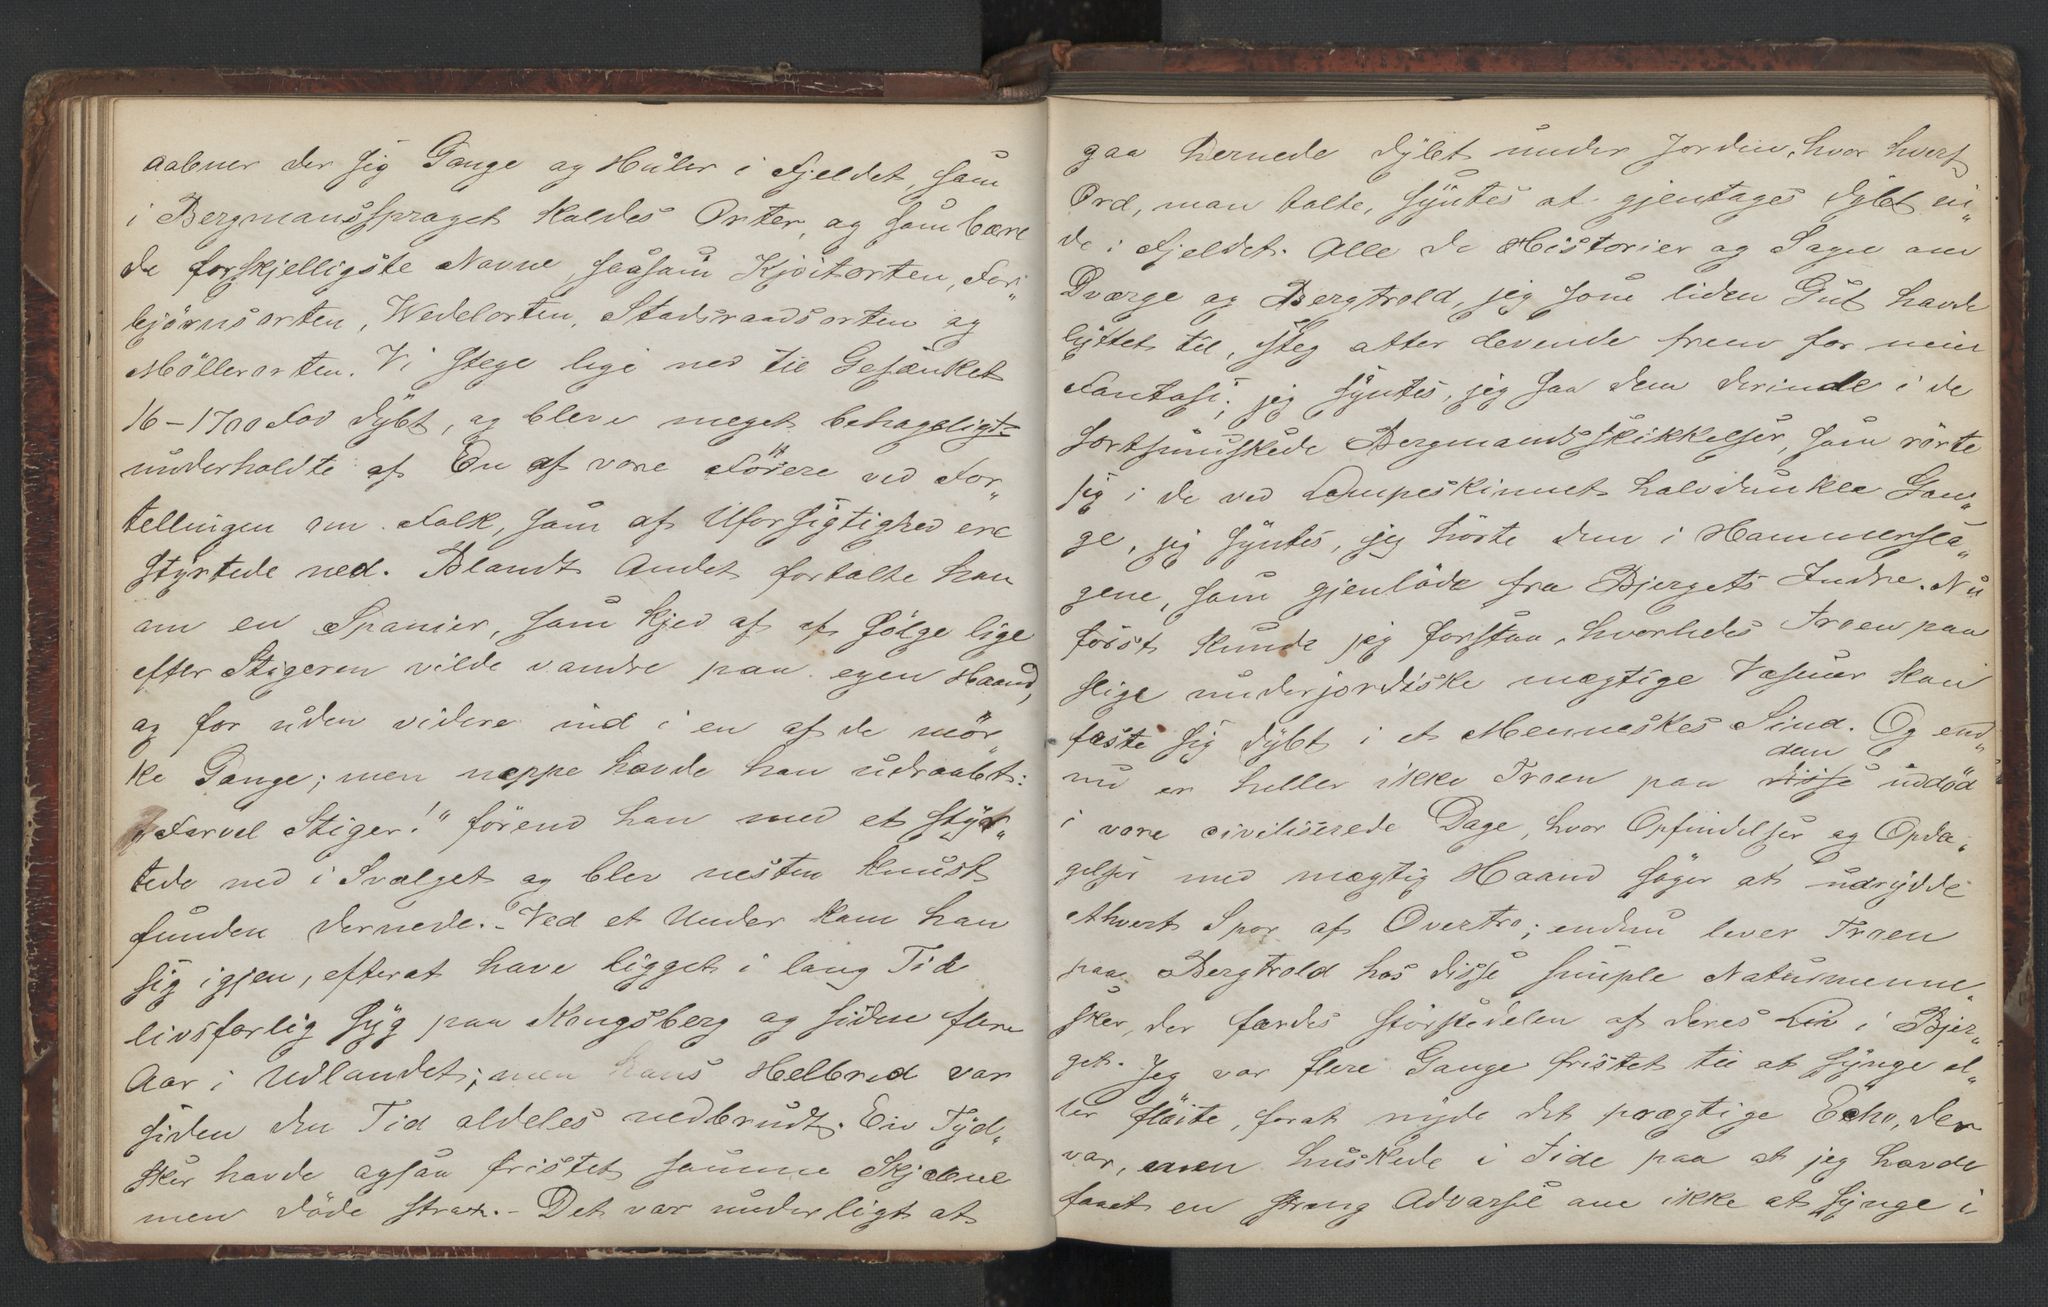 aabner der sig Gange og Huler i Fjeldet, som
i Bergmanssproget kaldes Orter, og som bære
de forskjelligste Navne, saasom Kjoitorten, Tor„
björnsorten, Wedelorten, Stadsraadsorten og
Möllerorten. Vi stege lige ned til Gesænket
16-1700 Fod dybt, og bleve meget behageligt
underholdte af En af vore Förere ved For„
tellingen om Folk, som af Uforsigtighed ere
styrtede ned. Blandt Andet fortalte han
om en Spanier, som kjed af at fölge lige
efter Stigeren vilde vandre paa egen Haand,
og for uden videre ind i en af de mör„
ke Gange; men neppe havde han udraabt:
„Farvel Stiger!" förend han med et styr„
tede ned i Svælget og blev nesten knust
funden dernede. Ved et Under kom han
sig igjen, efterat have ligget i lang Tid
livsfarlig syg paa Kongsberg og siden flere
Aar i Udlandet; men hans Helbred var
siden den Tid aldeles nedbrudt. En Tyd„
sker havde ogsaa fristet samme Skjæbne
men döde strax. - Det var underligt at
gaa dernede dybt under Jorden, hvor hvert
Ord, man talte, syntes at gjentages dybt in„
de i Fjeldet. Alle de Historier og Sagn om
Dværge og Bergtrold, jeg som liden Gut havde
lyttet til, steg atter levende frem for min
Fantasi; jeg syntes, jeg saa dem derinde i de
sortsmuskede Bergmandsskikkelser, som rörte
sig i de ved Lampeskinnet halvdunkle Gan„
ge, jeg syntes, jeg hörte dem i Hammersla„
gene, som gjenlöde fra Bjergets Indre. Nu
först kunde jeg forstaa, hvorledes Troen paa
slige underjordiske mægtige Væsner kan
feste sig dybt i et Menneskes Sind. Og end„
dem
nu er heller ikke Troen paa disse uddöd
i vore civiliserede Dage, hvor Opfindelser og Opda„
gelser med mægtig Haand söger at udrydde
ethvert Spor af Overtro; endnu lever Troen
paa Bergtrold hos disse simple Naturmenne„
sker, der færdes störstedelen af deres Liv i Bjer„
get. Jeg var flere Gange fristet til at synge el„
ler flöite, forat nyde det prægtige Echo, der
var, men huskede i Tide paa at jeg havde
faaet en streng Advarsel om ikke at synge i